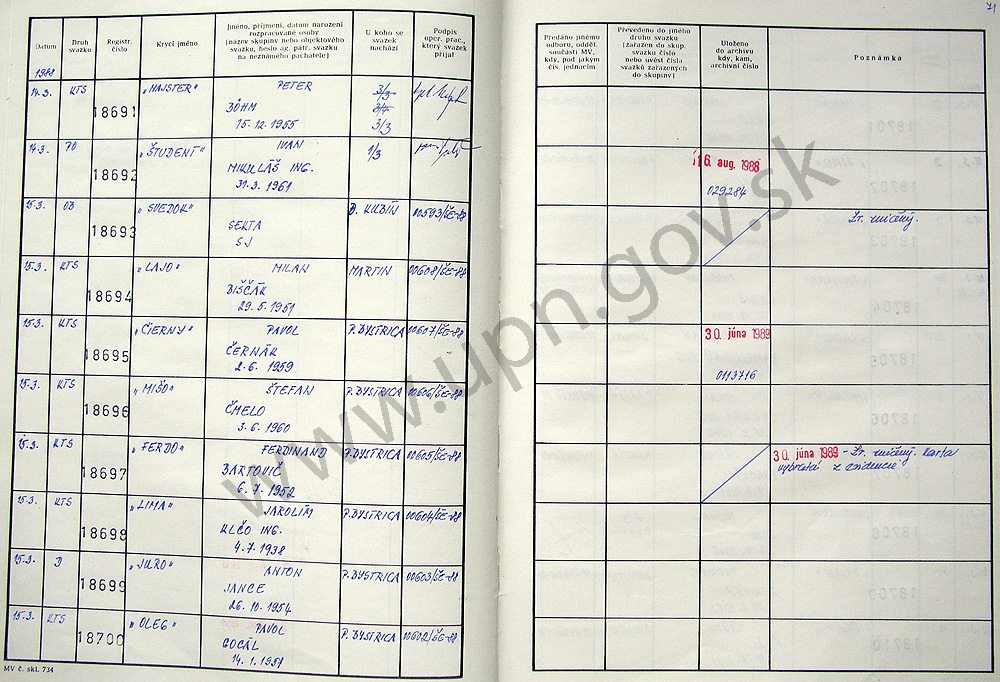 71
Datum
Druh svazku
Registr. číslo
Krycí jméno
Jméno, příjmení, datum narození
rozpracované osoby
(název skupiny nebo objektového
svazku, heslo ag. pátr. svazku
na neznámého pachatele)
U koho se
svazek
nachází
Podpis
oper. prac.,
který svazek
přijal
Předáno jinému
odboru, odděl.
součásti MV,
kdy, pod jakým
čís. jednacím
Převedeno do jiného
druhu svazku
(zařazen do skup.
svazku číslo
nebo uvést čísla
svazků zařazených
do skupiny)
Uloženo
do archivu
kdy, kam,
archivní číslo
Poznámka
1988
14.3. KTS 18691 „MAJSTER" PETER
BÖHM
15. 12. 1955
3/3
3/3
14.3. PO 18692 „ŠTUDENT" IVAN 1/3
MIKULÁŠ ING.
31.3. 1961
16. aug. 1988
029284
15.3. OB 18693 „SVEDOK" D. KUBÍN 00593/ŠE-88
SEKTA
SJ
Zr. zničený.
15.3. KTS 18694 „LAJO" MILAN MARTIN 00608/ŠE-88
DIŠČÁK
29. 5. 1951
15.3. KTS 18695 „ČIERNY" PAVOL P. BYSTRICA 00607/ŠE-88
ČERNÁK
2. 6. 1959
30. júna 1989
0113716
15.3. KTS 18696 „MIŠO" ŠTEFAN P. BYSTRICA 00606/ŠE-88
ČMELO
3. 6. 1960
15.3. KTS 18697 „FERDO" FERDINAND P. BYSTRICA 00605/ŠE-88
BARTOVIČ
6. 7. 1952
30. júna 1989 - Zr. zničený. karta
vybratá z evidencie
15.3. KTS 18698 „LIMA" JAROLÍM P. BYSTRICA 00604/ŠE-88
KLČO ING.
4. 7. 1938
15.3. D 18699 „JURO" ANTON P. BYSTRICA 00603/ŠE-88
JANCE
26. 10. 1954
15.3. KTS 18700 „OLEG" PAVOL P. BYSTRICA 00602/ŠE-88
GOCÁL
14. 1. 1951
MV č. skl. 734
www.upn.gov.sk